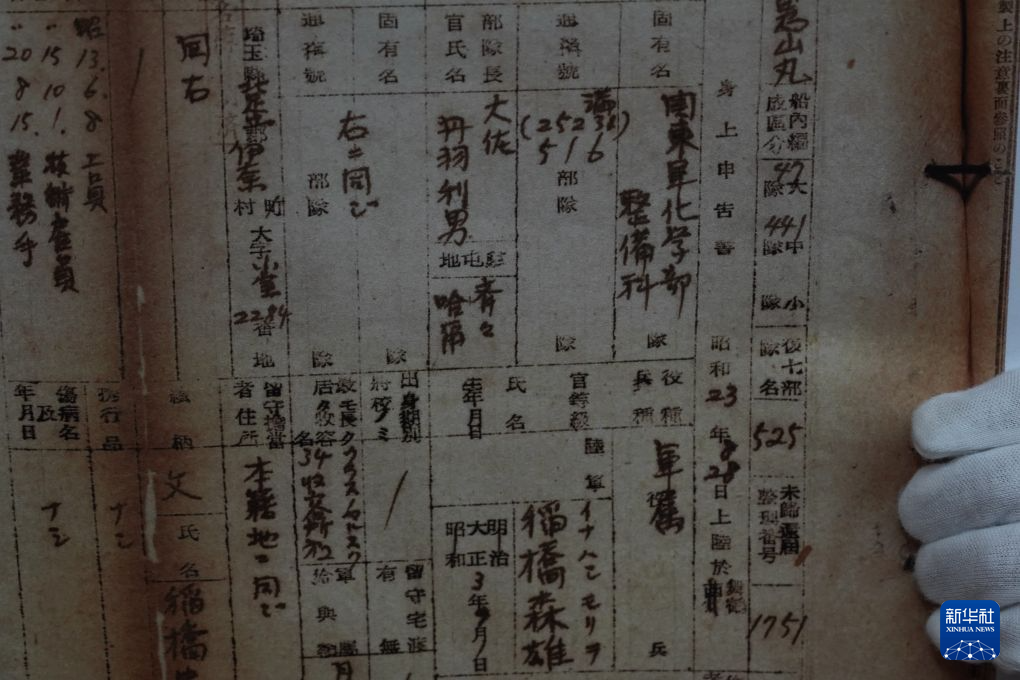 製上の注意裏面參照のこと
山丸
船內編成區分
47大隊
441中隊
小隊
復七部隊名
525
未歸還屆整理番号
1751
身上申告書
昭和23年
28日上陸於
固有名
関東軍化学部
整備科
隊
役種兵種
軍属
兵
通稱號
満
(25231)
516
部隊
隊
官等級
氏名
陸軍
イナハシモリヲ
稲橋森雄
部隊長官氏名
大佐
丹羽利男
駐屯地
斉々
哈爾
生年月日
明治
大正
昭和
3年
月
日
固有名
隊
出身期別
將校ノミ
留守宅渡
有無
通稱號
右ニ同ジ
部隊
隊
最モ長ク居タ收容所名
34收容所
埼玉縣
郡伊奈
町村
大字
2284番地
留守擔當者住所
本籍地ニ同ジ
同右
續柄
父
氏名
稲橋
携行品
ナシ
昭13.6.8 工員
〃15.10.1. 技術雇員
〃20.8.15. 業務手
傷病名及年月日
ナシ
新华社
XINHUA NEWS